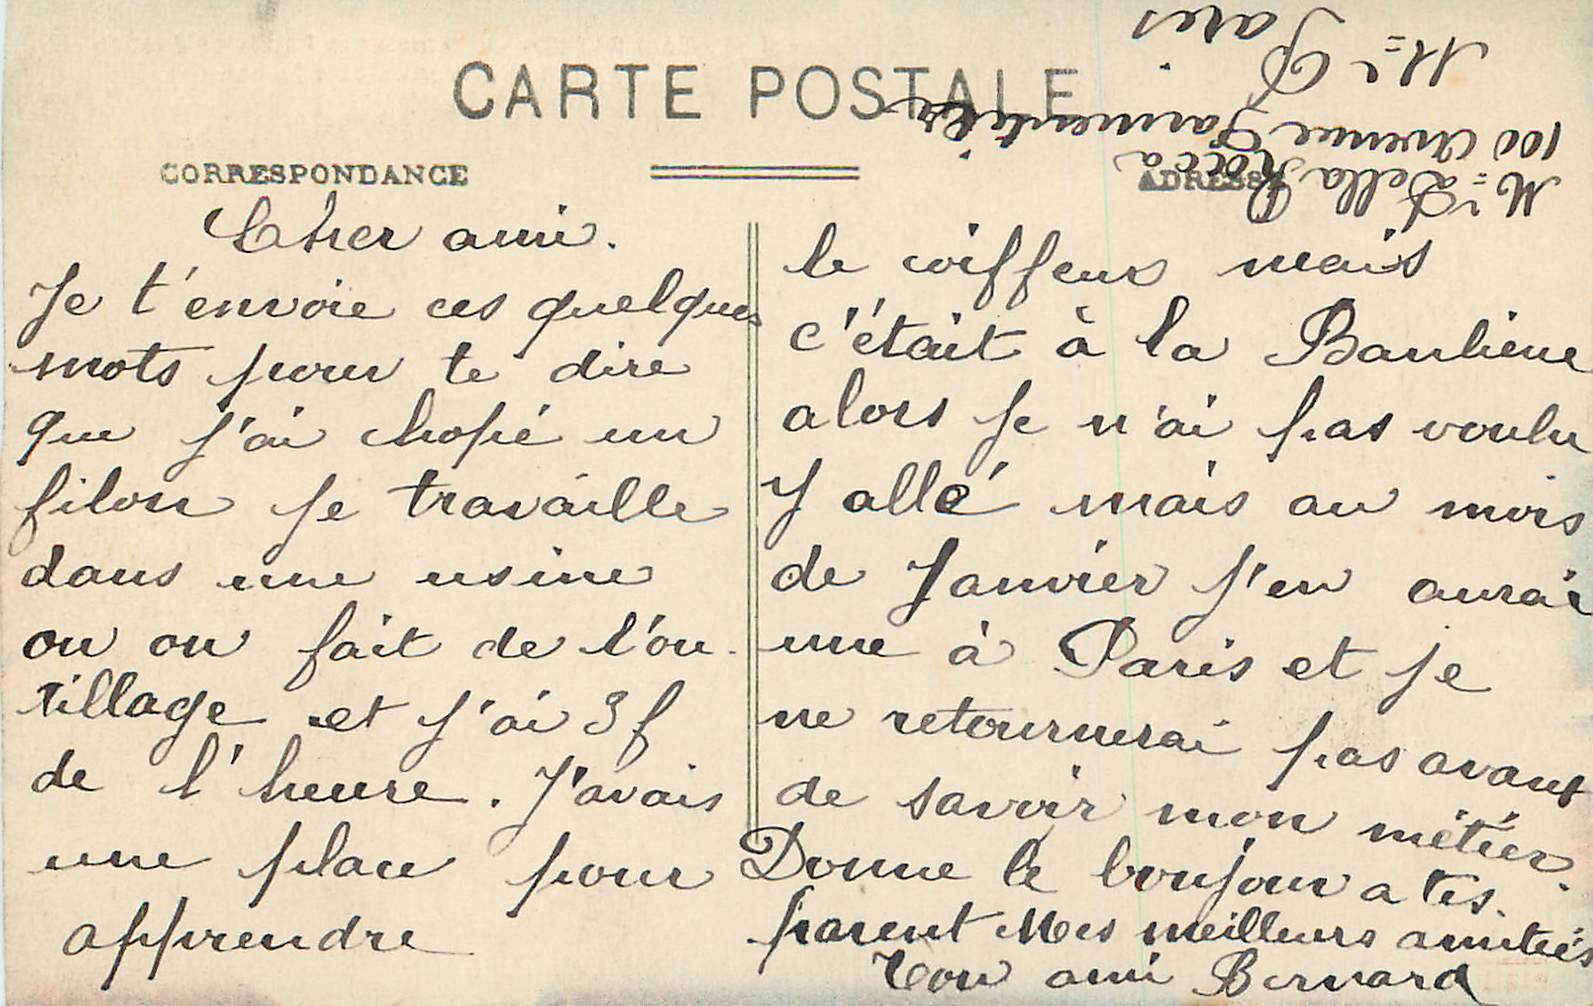 CARTE POSTALE
CORRESPONDANCE
ADRESSE
Cher ami.
Je t'envoie ces quelques
mots pour te dire
que j'ai chopé un
filon je travaille
dans une usine
ou on fait de l'ou
tillage et j'ai 3f
de l'heure. J'avais
une place pour
apprendre
le coiffeur mais
c'était à la Banlieue
alors je n'ai pas voulu
y allé mais au mois
de Janvier j'en aurai
une à Paris et je
ne retournerai pas avant
de savoir mon métier.
Donne le bonjour a tes
parent Mes meilleurs amitiés
Ton ami Bernard
Mr Della Rocca
100 Avenue Parmentier
Paris